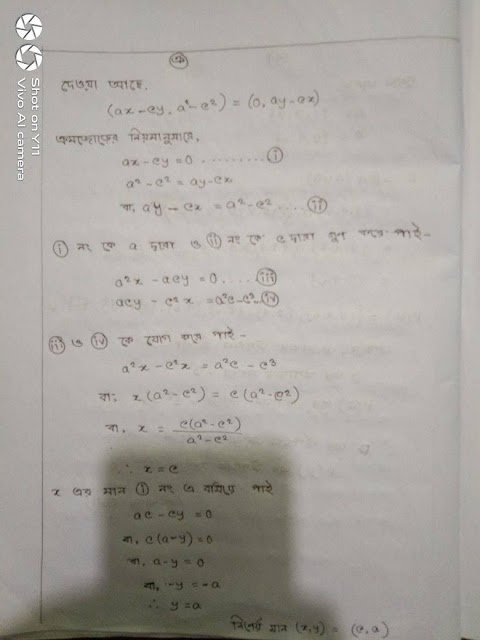 ক
দেওয়া আছে,
(ax - cy, a² - c²) = (0, ay - cx)
ক্রমজোড়ের নিয়মানুসারে,
ax - cy = 0 ......... (i)
a² - c² = ay - cx
বা, ay - cx = a² - c² .... (ii)
(i) নং কে a দ্বারা ও (ii) নং কে c দ্বারা গুণ করে পাই-
a²x - acy = 0 .... (iii)
acy - c²x = a²c - c³ ..(iv)
(iii) ও (iv) কে যোগ করে পাই -
a²x - c²x = a²c - c³
বা, x(a² - c²) = c(a² - c²)
বা, x = c(a² - c²) / a² - c²
∴ x = c
x এর মান (i) নং এ বসিয়ে পাই
ac - cy = 0
বা, c(a - y) = 0
বা, a - y = 0
বা, -y = -a
∴ y = a
নির্ণেয় মান (x, y) = (c, a)
Shot on Y11
Vivo AI camera